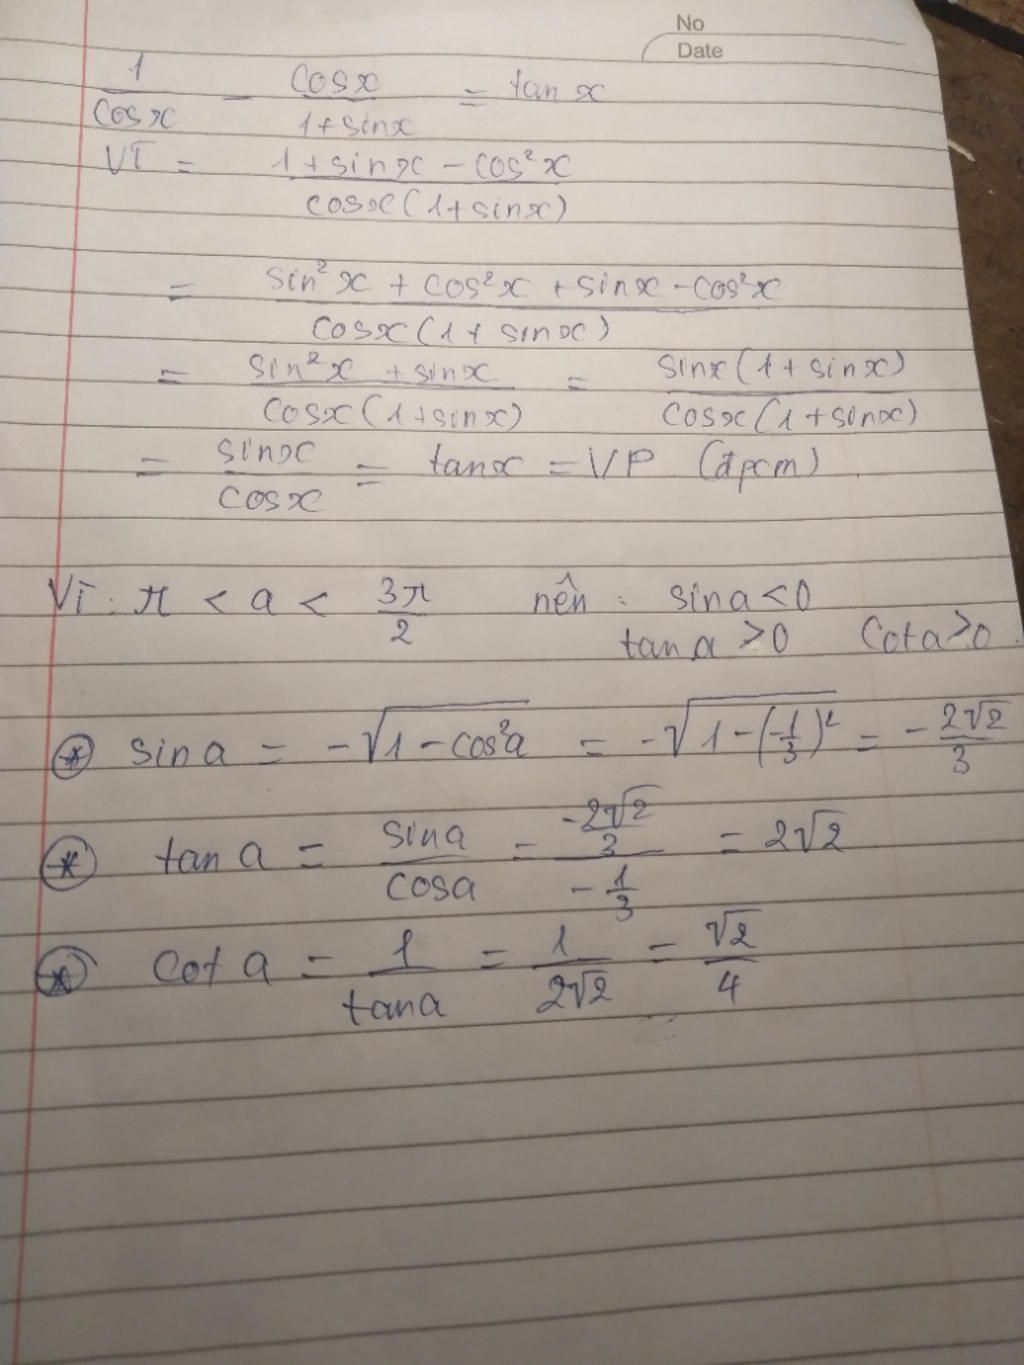 No
Date
1/cosx - cosx/(1+sinx) = tanx
VT = (1+sinx - cos²x)/(cosx(1+sinx))
= (sin²x + cos²x + sinx - cos²x)/(cosx(1+sinx))
= (sin²x + sinx)/(cosx(1+sinx)) = (sinx(1+sinx))/(cosx(1+sinx))
= sinx/cosx = tanx = VP (đpcm)
Vì: π < a < 3π/2 nên: sina<0
tana >0 cota>0
* sina = -√(1-cos²a) = -√(1-(-1/3)²) = -2√2/3
* tana = sina/cosa = (-2√2/3)/(-1/3) = 2√2
* cota = 1/tana = 1/(2√2) = √2/4